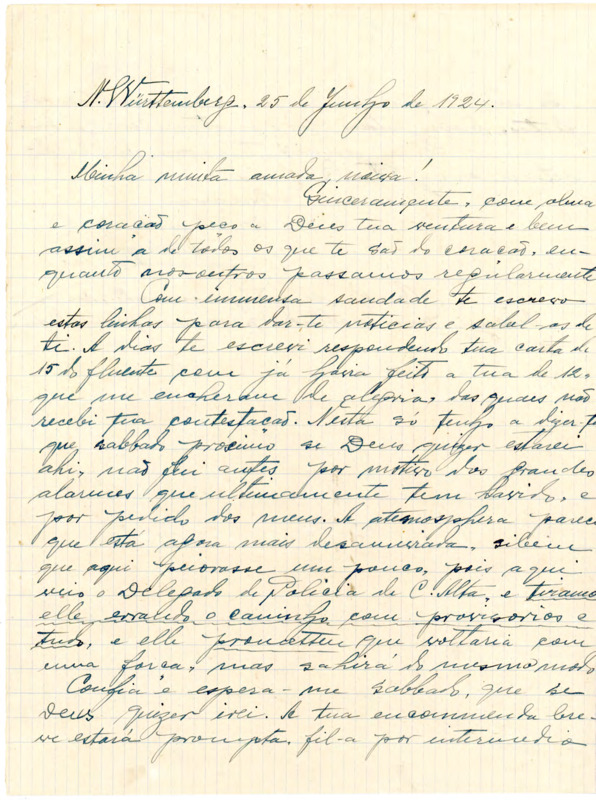 N. Württemberg, 25 de Junho de 1924.
Minha muita amada noiva!
Sinceramente, com alma
e coração peço a Deus tua ventura e bem
assim a de todos os que te são do coração, en-
quanto nos-outros passamos regularmente
Com immensa saudade te escrevo
estas linhas para dar-te noticias e sabel-as de
ti. A dias te escrevi respondendo tua carta de
15 do fluente com já havia feito a tua de 12,
que me encheram de alegria, das quaes não
recebi tua contestação. Nesta só tenho a dizer-te
que sabbado proximo se Deus quizer estarei
ahi, não fui antes por motivo dos grandes
alarmes que ultimamente tem havido, e
por pedido dos meus. A atemosphera parece
que está agora mais desanuviada, sibem
que aqui peiorasse um pouco, pois aqui
veio o Delegado de Policia de C. Alta, e tiramo
elle errando o caminho com provisorios e
tudo, e elle prometteu que voltaria com
uma força, mas sahirá do mesmo modo
Confia e espera-me sabbado, que se
Deus quizer irei. A tua encommenda bre-
ve estará prompta, fil-a por intermedio